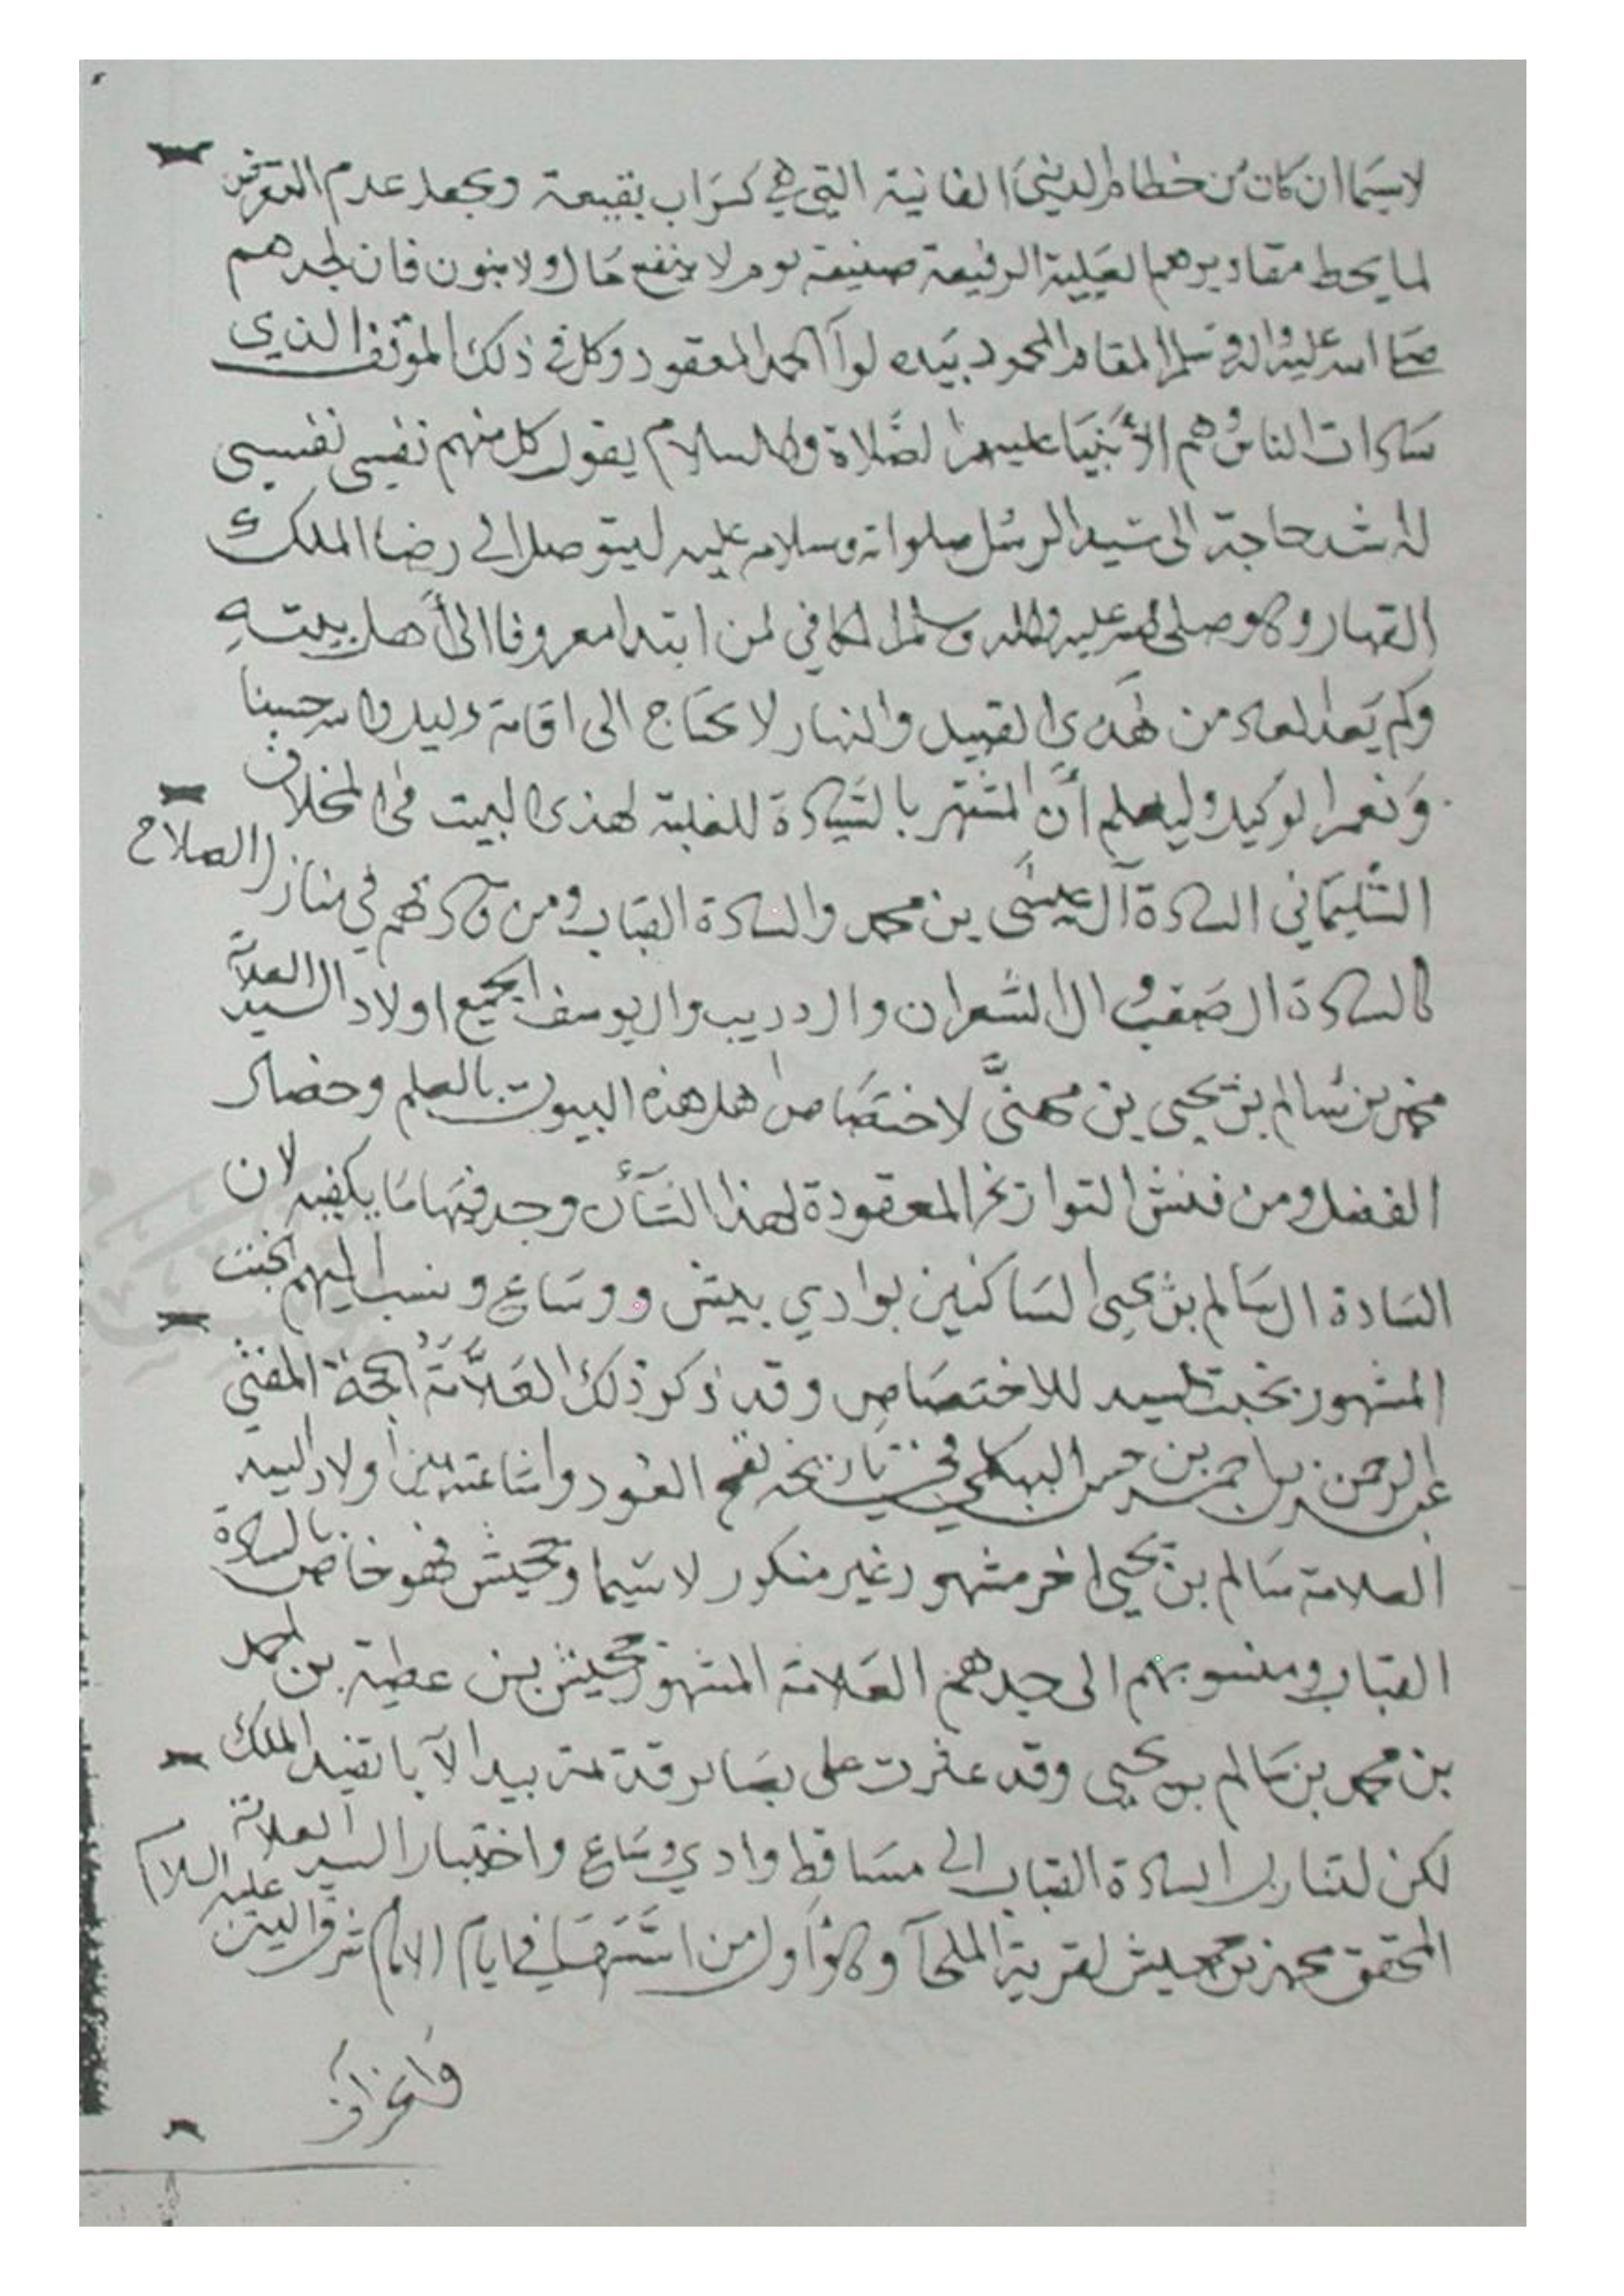 لاسيما ان كان من حطام الدنيا الفانية التي هي كسراب بقيعة ويجعل عدم التعرض
لما يحط مقاديرهم العلية الرفيعة صنيعة يوم لا ينفع مال ولا بنون فان لجدهم
صلى الله عليه واله وسلم المقام المحمود بيده لواء الحمد المعقود وكل في ذلك الموقف الذي
سادات الناس هم الأنبيا عليهم الصلاة والسلام يقول كل منهم نفسي نفسي
له اشد حاجة الى سيد الرسل صلواته وسلامه عليه ليتوصل الى رضا الملك
القهار وهو صلى الله عليه واله وسلم المكافي لمن ابتدا معروفا الى أهل بيته
وكم يعد العاد من هذى القبيل والنهار لا يحتاج الى اقامة دليل والله حسبنا
ونعم الوكيل وليعلم أن المشتهر بالسيادة للغلبة لهذى البيت في المخلاف
السليماني السادة آل عيسى بن محمد والسادة القباب ومن قاربهم في منازل الصلاح
كالسادة ال صعب و ال الشعران وال دريب وال يوسف الجميع اولاد السيد العلامة
محمد بن سالم بن يحيى بن مهنىَّ لاختصاص اهل هذه البيوت بالعلم وخصال
الفضل ومن فتش التواريخ المعقودة لهذا الشأن وجد فيها ما يكفيه لان
السادة ال سالم بن يحيى الساكنين بوادي بيش ووساع ونسب اليهم الخبت
المشهور بخبت السيد للاختصاص وقد ذكر ذلك العلَّامة الحجة المفتي
عبد الرحمن بن احمد بن حسن البهكلي في تاريخه نفح العود واشاعته بين اولاد السيد
العلامة سالم بن يحيى اخر مشهور غير منكور لا سيما وحيش فهو خاص بالسادة
القباب ومنسوبهم الى جدهم العلامة المشهور محيش بن عطية بن احمد
بن محمد بن سالم بن يحيى وقد عثرت على بصاير قديمة بيد الآبا تفيد الملك
لكن لتنازل السادة القباب الى مساقط وادي وساع واختيار السيد العلامة
المحقق محمد بن محيش لقرية الملحآ وهو أول من استمرها في ايام الامام شرف الدين عليه السلام